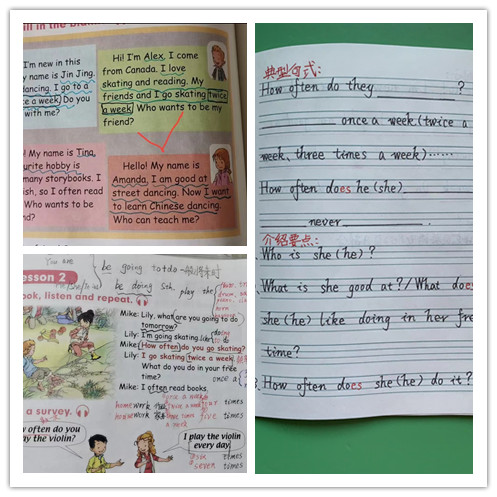 I'm new in this
name is Jin Jing.
dancing. I go to a
ce a week. Do you
with me?
Hi! I'm Alex. I come
from Canada. I love
skating and reading. My
friends and I go skating twice
a week. Who wants to be my
friend?
! My name is Tina.
urite hobby is
many storybooks. I
ish, so I often read
Who wants to be
nd?
Hello! My name is
Amanda. I am good at
street dancing. Now I want
to learn Chinese dancing.
Who can teach me?
You are
be going to do
be doing
play the
esson 2
ook, listen and repeat.
Mike: Lily, what are you going to do
tomorrow?
Lily: I'm going skating.
Mike: How often do you go skating?
Lily: I go skating twice a week.
What do you do in your free
time?
once a
Mike: I often read books.
homework
times
housework
five times
a survey.
w often do you
ay the violin?
I play the violin
every day.
six times
seven times
典型句式:
How often do they ____________ ?
____________ once a week.(twice a
week、three times a week)……
How often does he (she) ____________
____________ never ____________.
介绍要点:
Who is she (he) ?
What is she good at?/What does
she (he) like doing in her free
time?
How often does she (he) do it?